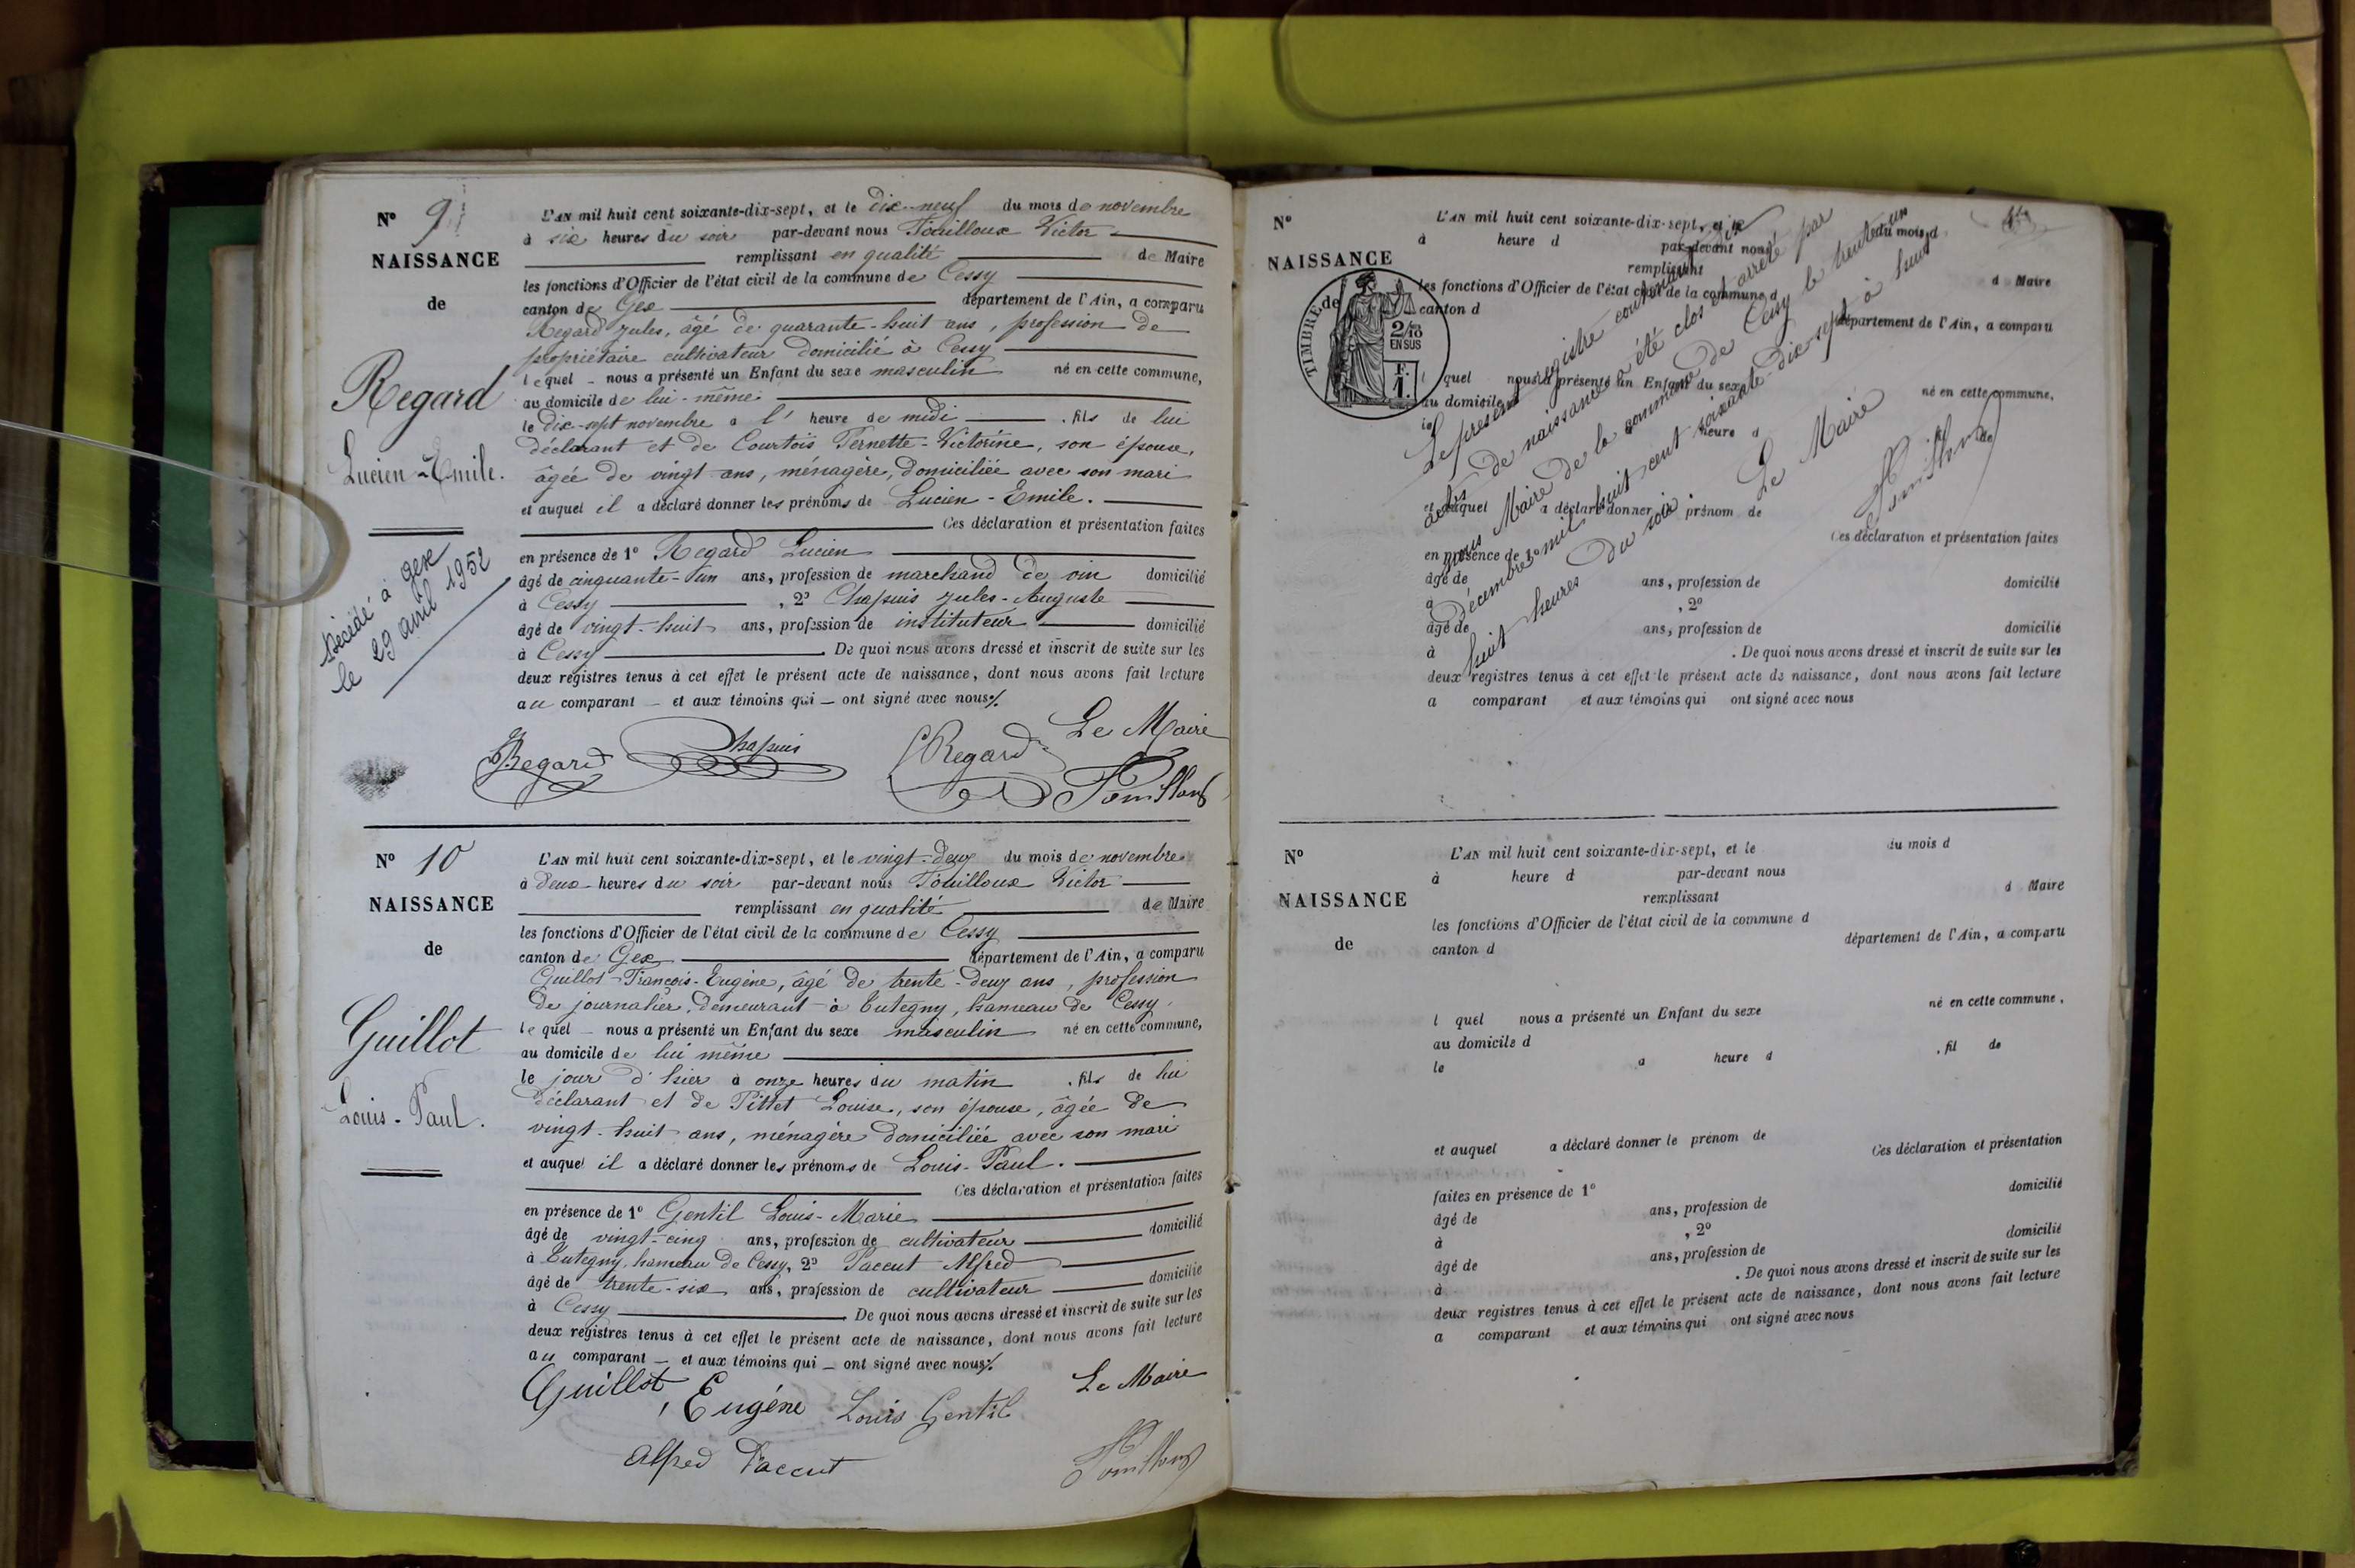 N° 9
NAISSANCE
de
Regard
Lucien-Emile.
Décédé à gex
le 29 avril 1952
L'AN mil huit cent soixante-dix-sept, et le dix-neuf du mois de novembre
à six heures du soir par-devant nous Touilloux Victor
remplissant en qualité de Maire
les fonctions d'Officier de l'état civil de la commune de Cessy
canton de Gex département de l'Ain, a comparu
Regard Jules, âgé de quarante-huit ans, profession de
propriétaire cultivateur domicilié à Cessy
lequel nous a présenté un Enfant du sexe masculin né en cette commune,
au domicile de lui-même
le dix-sept novembre à l' heure de midi , fils de lui
déclarant et de Courtois Pernette-Victorine, son épouse,
âgée de vingt ans, ménagère, domiciliée avec son mari
et auquel il a déclaré donner les prénoms de Lucien-Emile.
Ces déclaration et présentation faites
en présence de 1° Regard Lucien
âgé de cinquante-un ans, profession de marchand de vin domicilié
à Cessy , 2° Chapuis Jules-Auguste
âgé de vingt-huit ans, profession de instituteur domicilié
à Cessy . De quoi nous avons dressé et inscrit de suite sur les
deux registres tenus à cet effet le présent acte de naissance, dont nous avons fait lecture
au comparant et aux témoins qui ont signé avec nous
Le Maire
Regard Chapuis Regard
Touilloux
N° 10
NAISSANCE
de
Guillot
Louis-Paul.
L'AN mil huit cent soixante-dix-sept, et le vingt-deux du mois de novembre
à deux heures du soir par-devant nous Touilloux Victor
remplissant en qualité de Maire
les fonctions d'Officier de l'état civil de la commune de Cessy
canton de Gex département de l'Ain, a comparu
Guillot François-Eugène, âgé de trente-deux ans, profession
de journalier, demeurant à Tutegny, hameau de Cessy,
lequel nous a présenté un Enfant du sexe masculin né en cette commune,
au domicile de lui même
le jour d'hier à onze heures du matin , fils de lui
déclarant et de Pittet Louise, son épouse, âgée de
vingt-huit ans, ménagère domiciliée avec son mari
et auquel il a déclaré donner les prénoms de Louis-Paul.
Ces déclaration et présentation faites
en présence de 1° Gentil Louis-Marie
âgé de vingt-cinq ans, profession de cultivateur domicilié
à Tutegny, hameau de Cessy, 2° Paccut Alfred
âgé de trente-six ans, profession de cultivateur domicilié
à Cessy . De quoi nous avons dressé et inscrit de suite sur les
deux registres tenus à cet effet le présent acte de naissance, dont nous avons fait lecture
au comparant et aux témoins qui ont signé avec nous
Guillot, Eugène Louis Gentil Le Maire
Alfred Paccut Touilloux
N°
NAISSANCE
de
TIMBRE
2/10
EN SUS
F.
1.
L'AN mil huit cent soixante-dix-sept, et le du mois d
à heure d par-devant nous
remplissant d Maire
les fonctions d'Officier de l'état civil de la commune d
canton d département de l'Ain, a comparu
l quel nous a présenté un Enfant du sexe né en cette commune,
au domicile d
le heure d , fil de
et auquel a déclaré donner le prénom de
Ces déclaration et présentation faites
en présence de 1°
âgé de ans, profession de domicilié
à , 2°
âgé de ans, profession de domicilié
à . De quoi nous avons dressé et inscrit de suite sur les
deux registres tenus à cet effet le présent acte de naissance, dont nous avons fait lecture
a comparant et aux témoins qui ont signé avec nous
Le présent registre contenant dix
actes de naissance a été clos et arrêté par
nous Maire de la commune de Cessy le trente un
décembre mil huit cent soixante-dix-sept à
huit heures du soir
Le Maire
Touilloux
N°
NAISSANCE
de
L'AN mil huit cent soixante-dix-sept, et le du mois d
à heure d par-devant nous
remplissant d Maire
les fonctions d'Officier de l'état civil de la commune d
canton d département de l'Ain, a comparu
l quel nous a présenté un Enfant du sexe né en cette commune,
au domicile d
le à heure d , fil de
et auquel a déclaré donner le prénom de
Ces déclaration et présentation
faites en présence de 1°
âgé de ans, profession de domicilié
à , 2°
âgé de ans, profession de domicilié
à . De quoi nous avons dressé et inscrit de suite sur les
deux registres tenus à cet effet le présent acte de naissance, dont nous avons fait lecture
a comparant et aux témoins qui ont signé avec nous